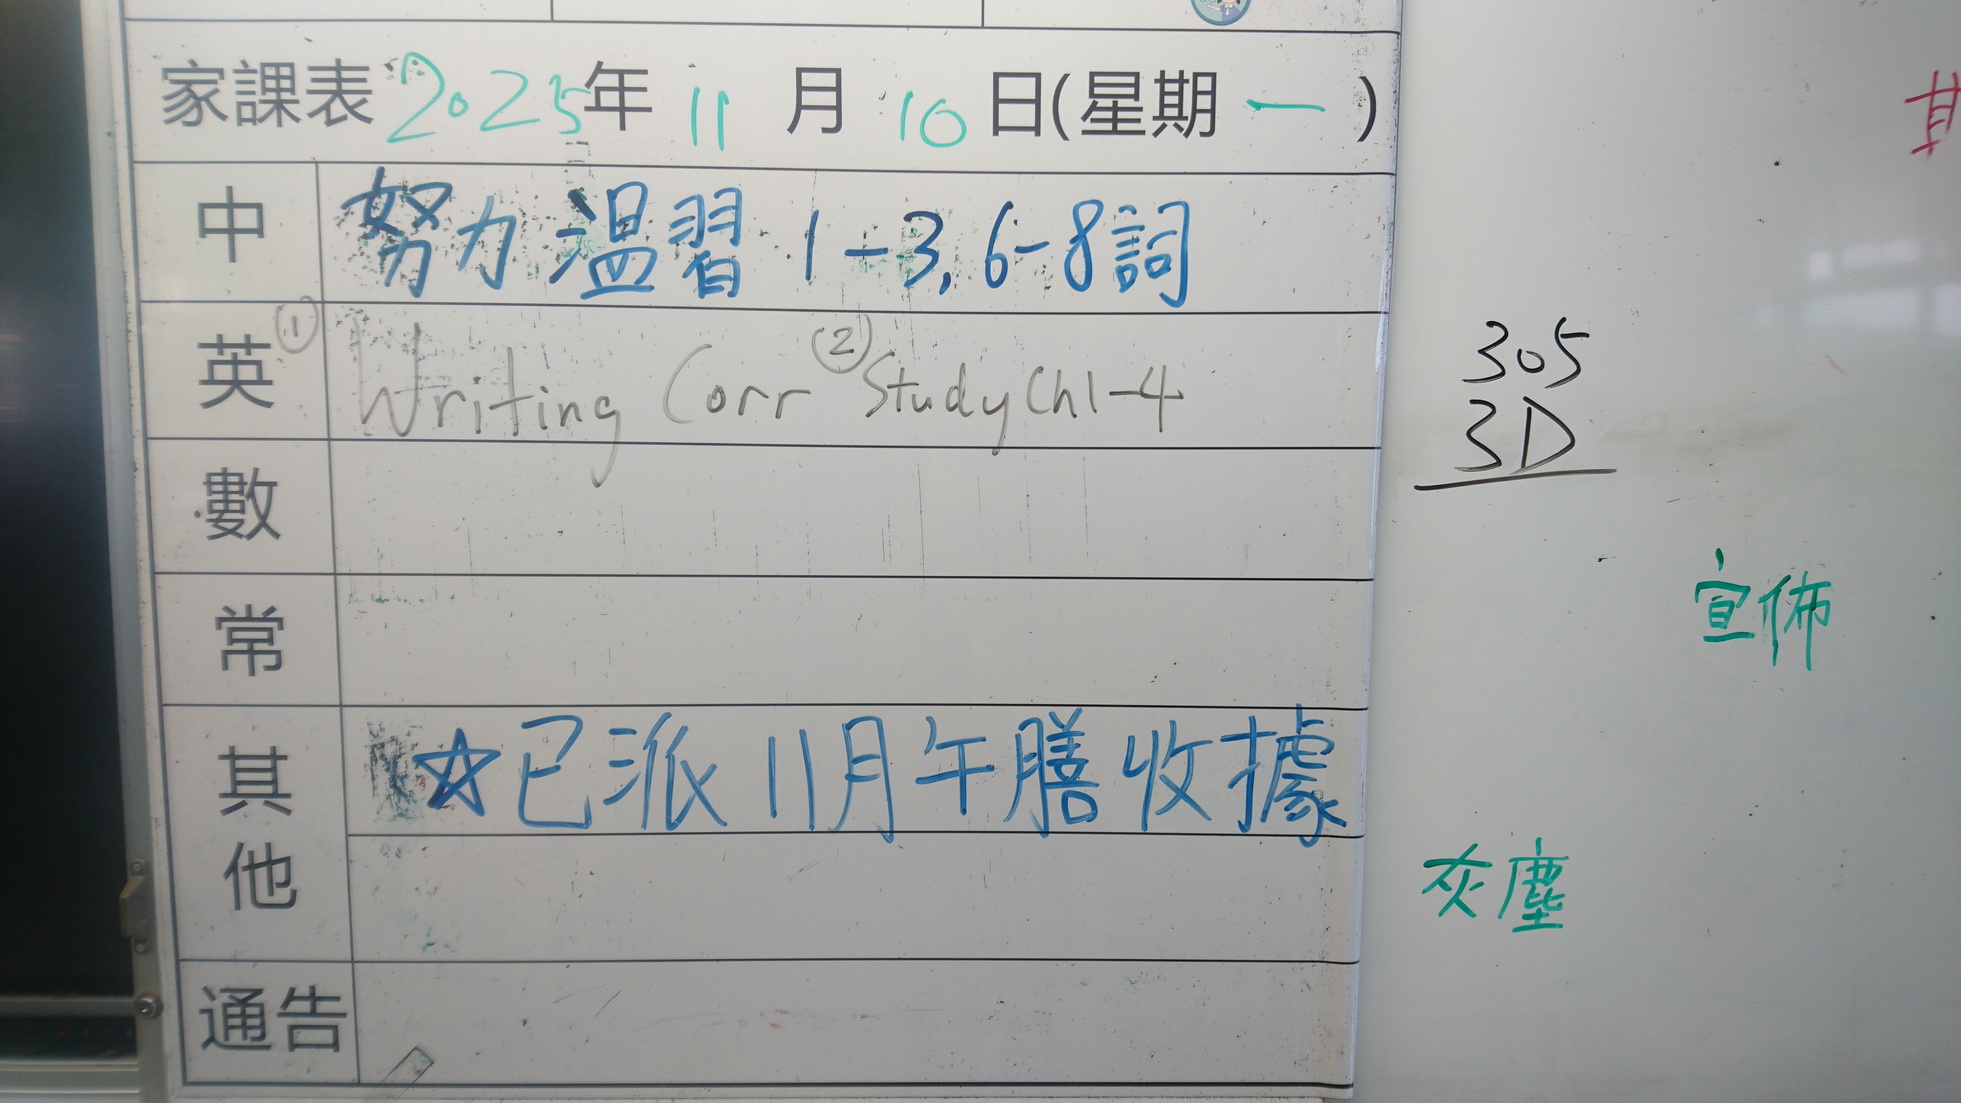 家課表 2025年 11 月 10 日(星期 一 )
中 努力溫習 1-3, 6-8詞
英 ① Writing Corr ② Study Ch1-4
數
常
其他 ☆已派11月午膳收據
通告
305
3D
宣佈
灰塵